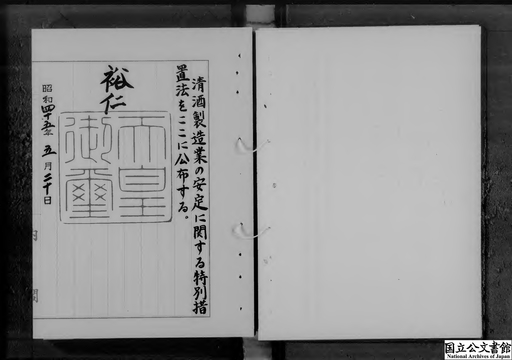 清酒製造業の安定に関する特別措
置法をここに公布する。
裕仁
天皇
御璽
昭和四十五年五月二十日
内閣
国立公文書館
National Archives of Japan